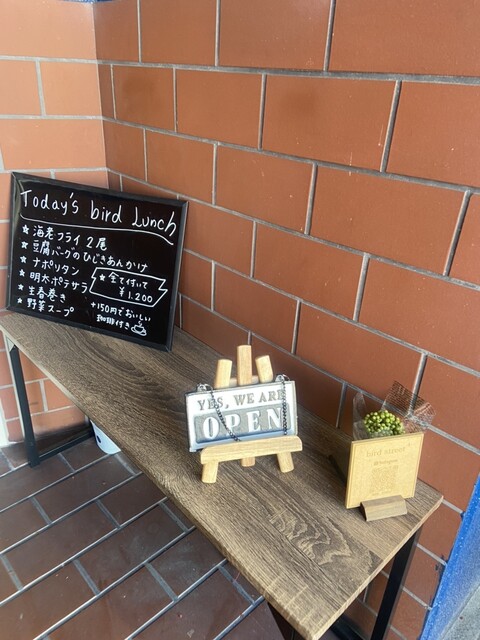 Today's bird Lunch
★ 海老フライ 2尾
★ 豆腐バーグのひじきあんかけ
★ ナポリタン
★ 明太ポテサラ
★ 生春巻き
★ 野菜スープ
★ 全て付いて
¥1,200
+150円でおいしい
珈琲付き
YES, WE ARE
OPEN
bird street